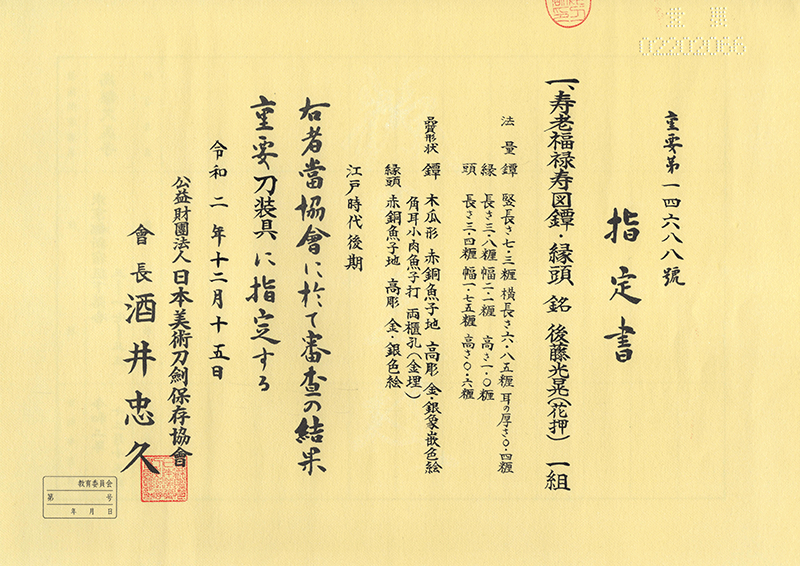 重要第一四六八八號
指定書
一、寿老福禄寿図鐔・縁頭 銘 後藤光晃(花押) 一組
法量 鐔 竪長さ七・三糎 横長さ六・八五糎 耳の厚さ〇・四糎
縁 長さ三・八糎 幅二・二糎 高さ一・〇糎
頭 長さ三・四糎 幅一・七五糎 高さ〇・六糎
品質形状 鐔 木瓜形 赤銅魚子地 高彫 金・銀象嵌色絵
角耳小肉魚子打 両櫃孔(金埋)
縁頭 赤銅魚子地 高彫 金・銀色絵
江戸時代後期
右者當協會に於て審査の結果
重要刀装具に指定する
令和二年十二月十五日
公益財團法人日本美術刀劍保存協會
會長 酒井忠久
02202066
教育委員会
第 号
年 月 日